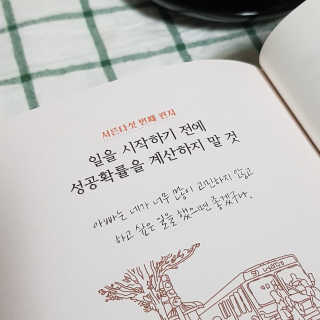 서른다섯 번째 편지
일을 시작하기 전에
성공확률을 계산하지 말 것
아빠는 네가 너무 많이 고민하지 않고
하고 싶은 일을 했으면 좋겠구나.